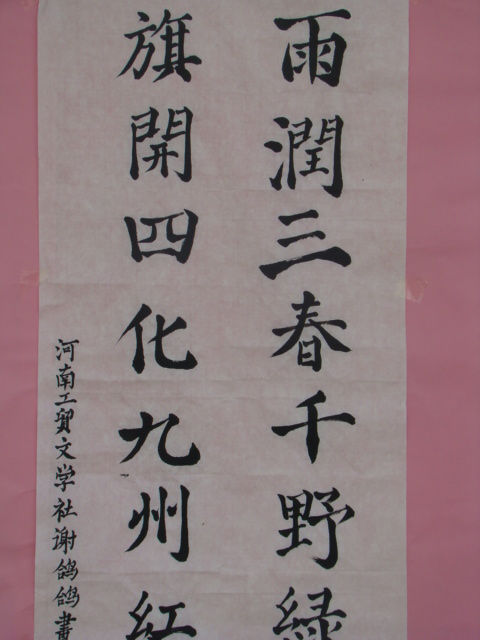 雨潤三春千野緑
旗開四化九州紅
河南工贸文学社谢鸽鸽書